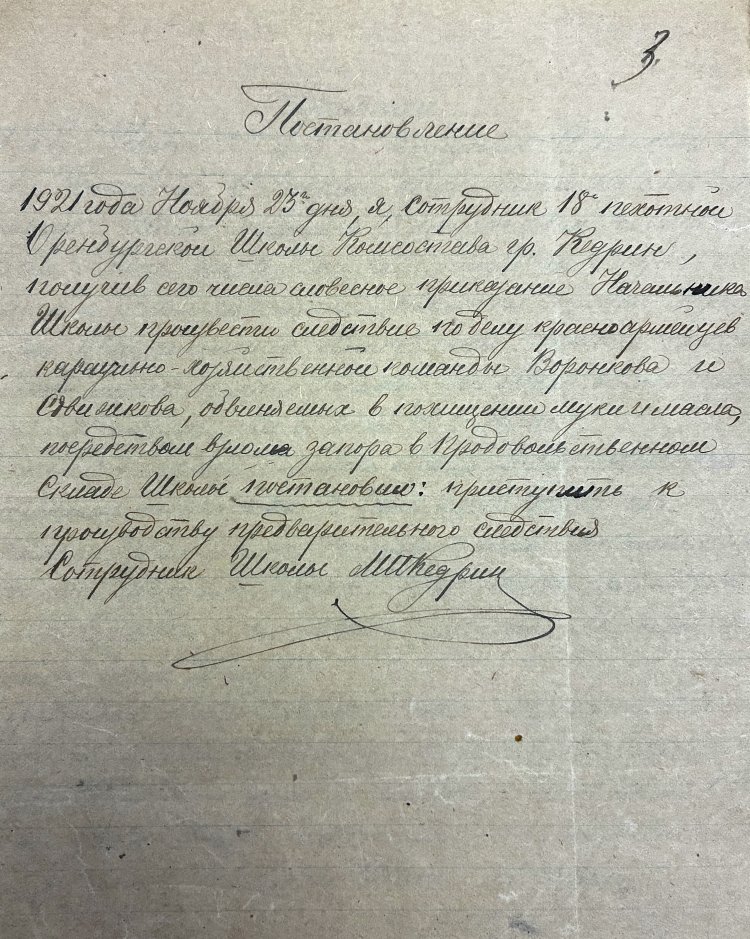 3
Постановление
1921 года Ноября 23го дня, я, сотрудник 18й пехотной
Оренбургской Школы Комсостава гр. Кедрин,
получив сего числа словесное приказание Начальника
Школы произвести следствие по делу красноармейцев
караульно-хозяйственной команды Воронкова и
обвиняемых в похищении муки и масла,
посредством взлома запора в Продовольственном
складе Школы постановил: приступить к
производству предварительного следствия
Сотрудник Школы Кедрин